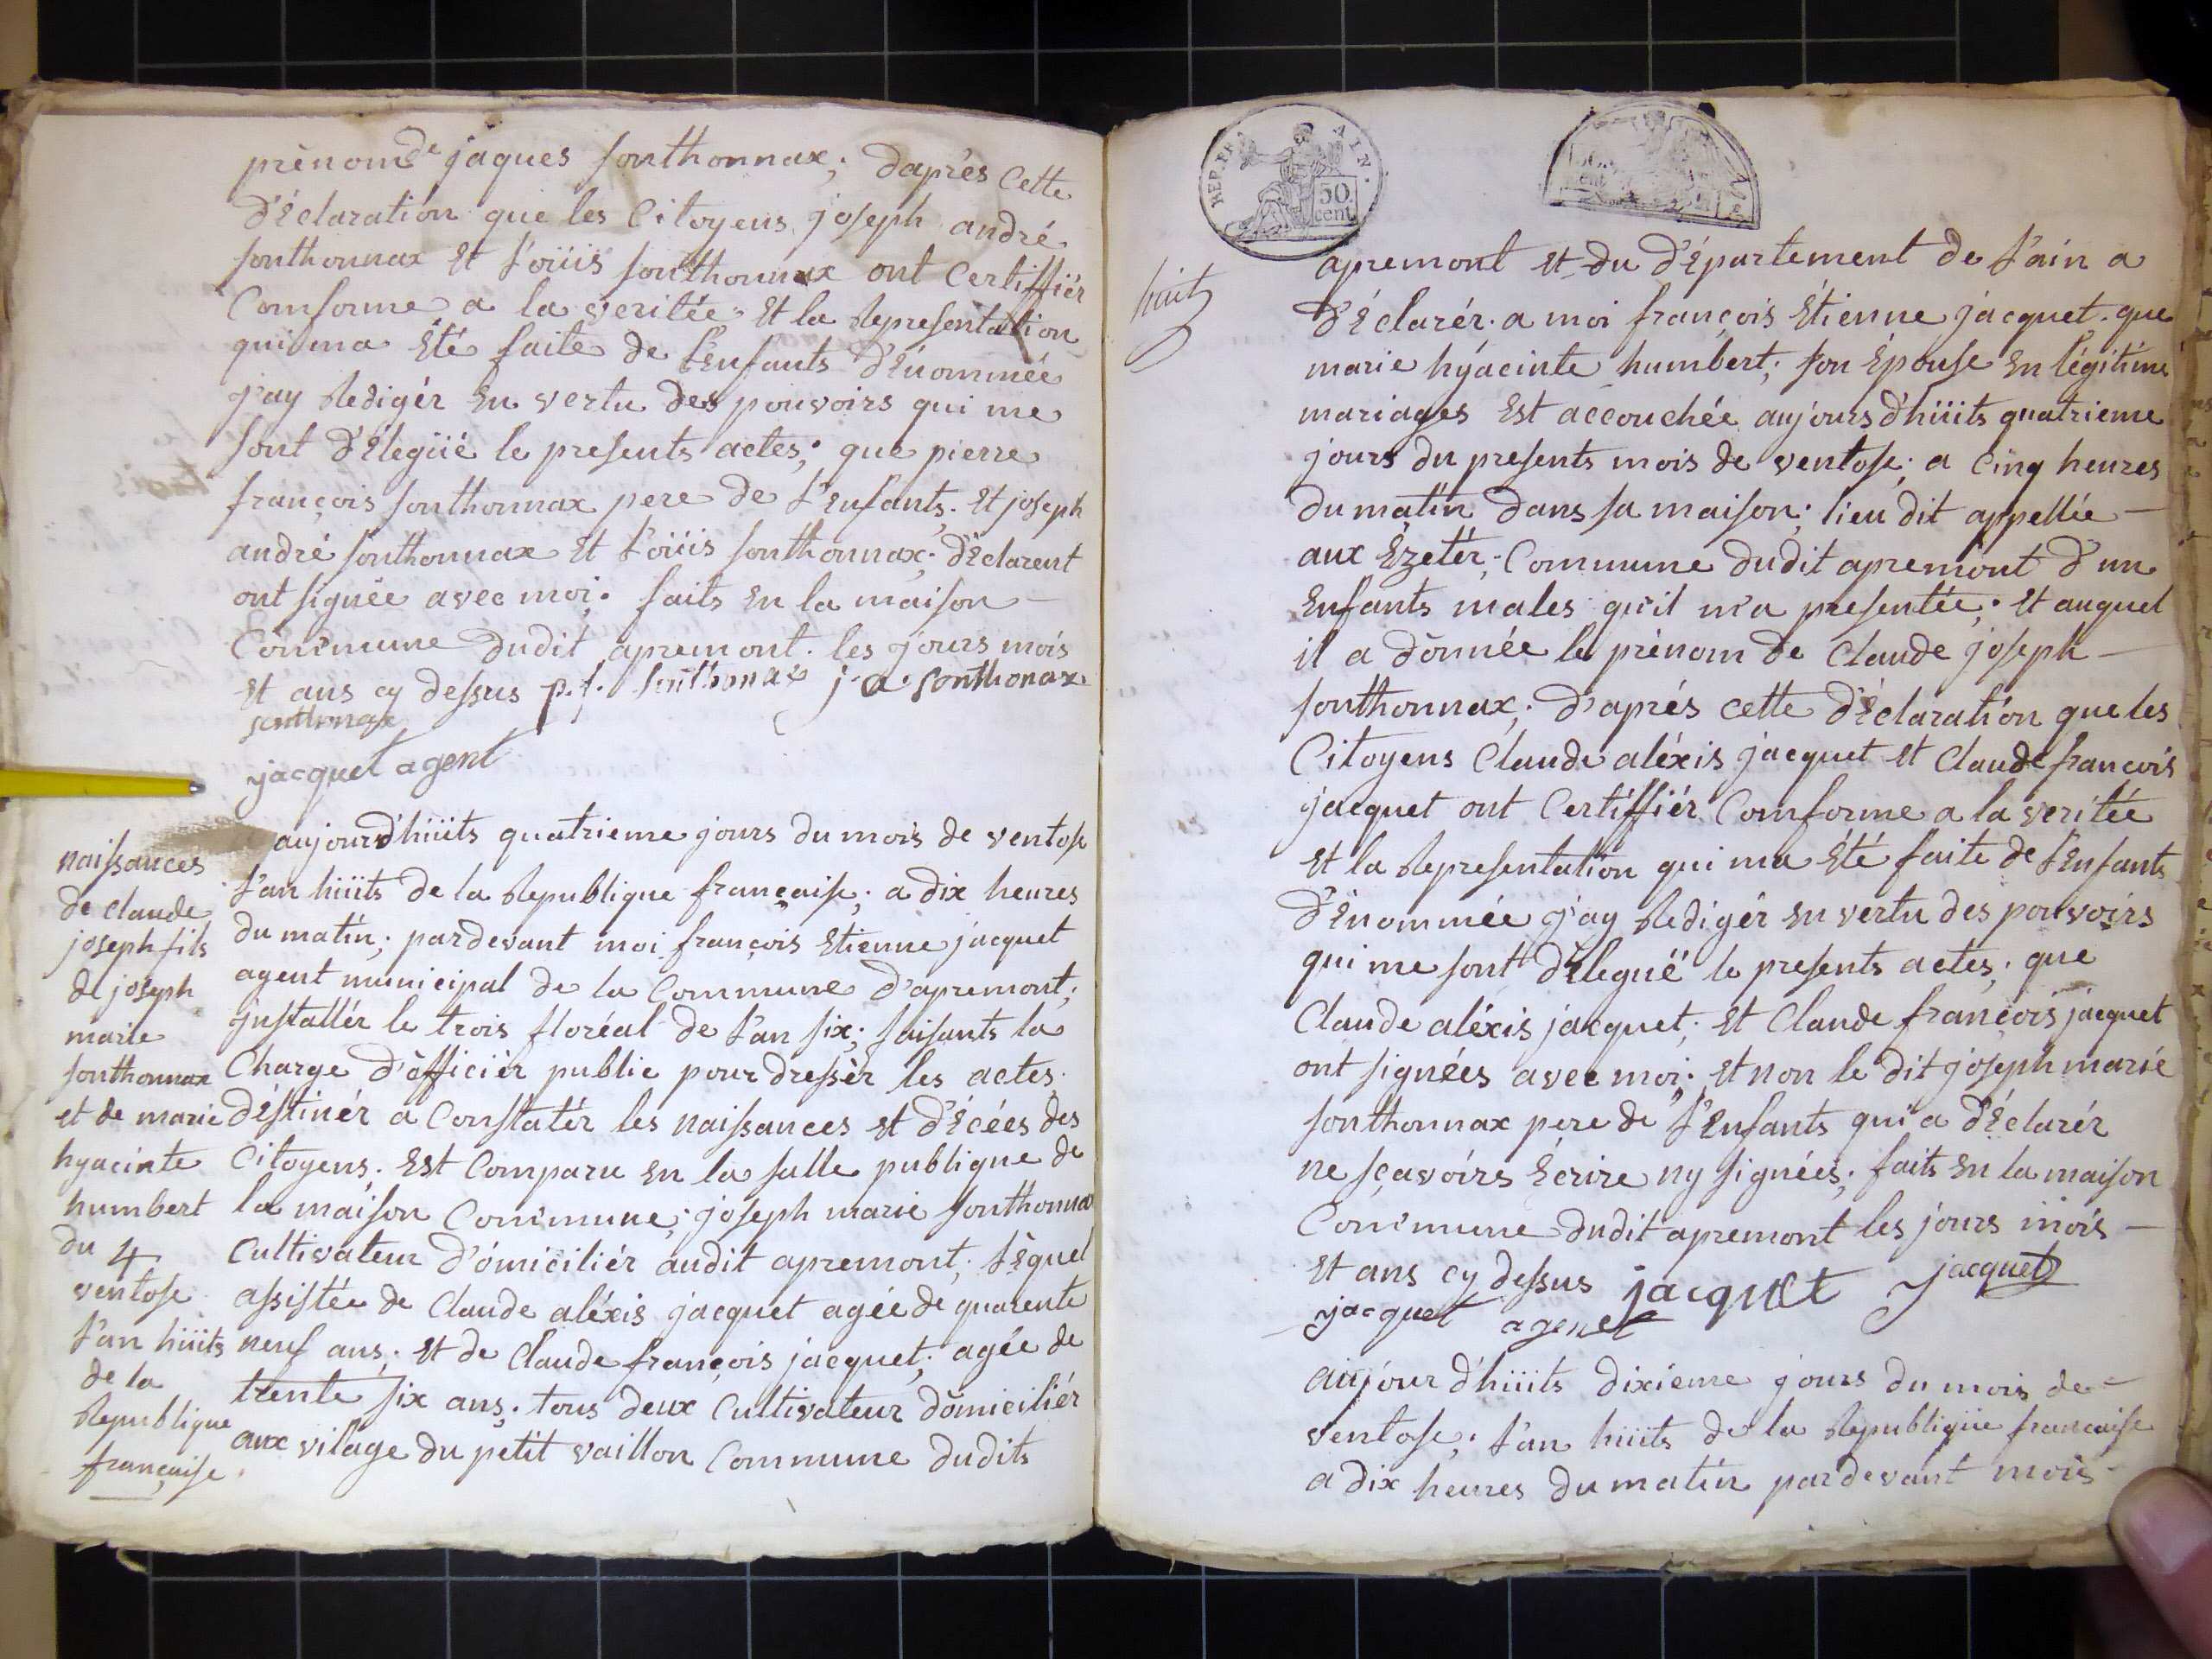 prènom de jaques sonthonnax; daprès cette
d'Éclaration que les Citoyens joseph andré
sonthonnax Et Loüis sonthonnax ont Certiffiér
Comforme a la veritée Et la Representation
qui ma Eté faite de L'Enfants d'Énommée
j'ay Redigér En vertu des pouvoirs qui me
sont d'Elegüé le presents actes; que pierre
françois sonthonnax pere de L'Enfants. Et joseph
andré sonthonnax Et Loüis sonthonnax; d'Eclarent
ont signée avec moi. faits En la maison
Commune dudit apremont. les jours mois
Et ans cy dessus p. f. sonthonax j. a. sonthonax
sonthonax
jacquet agent
naissances
de claude
joseph fils
de joseph
marie
sonthonnax
et de marie
hyacinte
humbert
du 4
ventose
L'an hüits
de la
Republique
française
aujourd'hüits quatrieme jours du mois de ventose
L'an hüits de la Republique française; a dix heures
du matin; pardevant moi françois Etienne jacquet
agent municipal de la Commune d'apremont;
jnstallér le trois floréal de L'an six; faisants la
Charge d'officiér public pour dressér les actes
déstinér a Constatér les naissances et d'Écées des
Citoyens. Est Comparu En la salle publique de
la maison Commune; joseph marie sonthonnax
Cultivateur d'omiciliér audit apremont; Lèquel
assistée de Claude aléxis jacquet agée de quarente
neuf ans; Et de Claude françois jacquet; agée de
trente six ans. tous deux Cultivateur domiciliér
aux vilage du petit vaillon Commune dudits
REP. FR. AIN.
50 cent
huit
apremont et du d'Épartement de L'ain a
d'Éclarér a moi françois Étienne jacquet que
marie hyacinte humbert; son Épouse En légitime
mariages Est accouchée aujours d'hüits quatrieme
jours du presents mois de ventose; a Cinq heures
du matin dans sa maison; lieu dit appellée
aux Ezetér; Commune dudit apremont d'un
Enfants males qu'il m'a presentée; Et auquel
il a donnée le prènom de Claude joseph
sonthonnax; d'aprés cette d'Éclaration que les
Citoyens Claude aléxis jacquet et Claude francois
jacquet ont Certiffiér Comforme a la veritée
Et la Representation qui ma Eté faite de L'Enfants
d'Énommée j'ay Redigér En vertu des pouvoirs
qui me sont d'Elegüé le presents actes; que
Claude aléxis jacquet; Et Claude françois jacquet
ont signées avec moi; Et non le dit joseph marie
sonthonnax pere de L'Enfants qui a d'Éclarér
ne sçavoirs Ecrire ny signées; faits En la maison
Commune dudit apremont les jours mois
Et ans cy dessus jacquet jacquet
jacquet agent
aujour d'hüits dixieme jours du mois de
ventose; L'an hüits de la Republiqüe francaise
a dix heures du matin pardevant mois